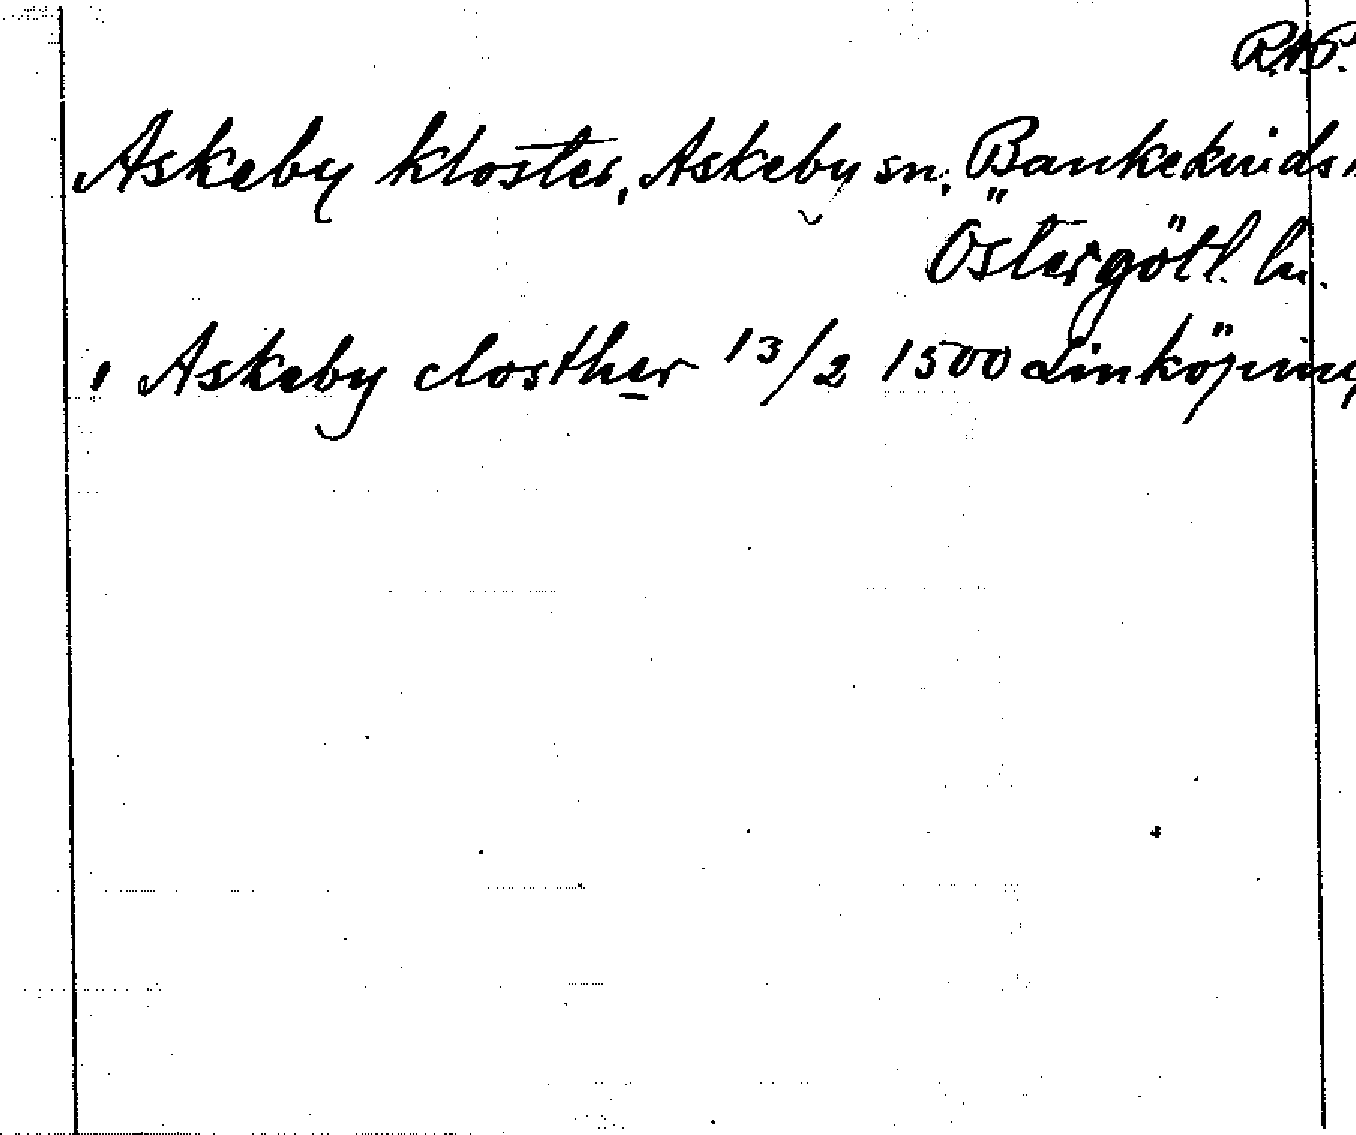 R.A.P.
Askeby kloster, Askeby sn, Bankekinds
Östergötl. ln.
, Askeby closther 13/2 1500 Linköping